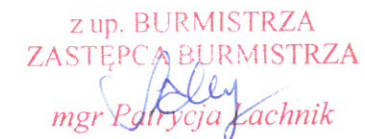 z up. BURMISTRZA
ZASTĘPCA BURMISTRZA
mgr Patrycja Lachnik